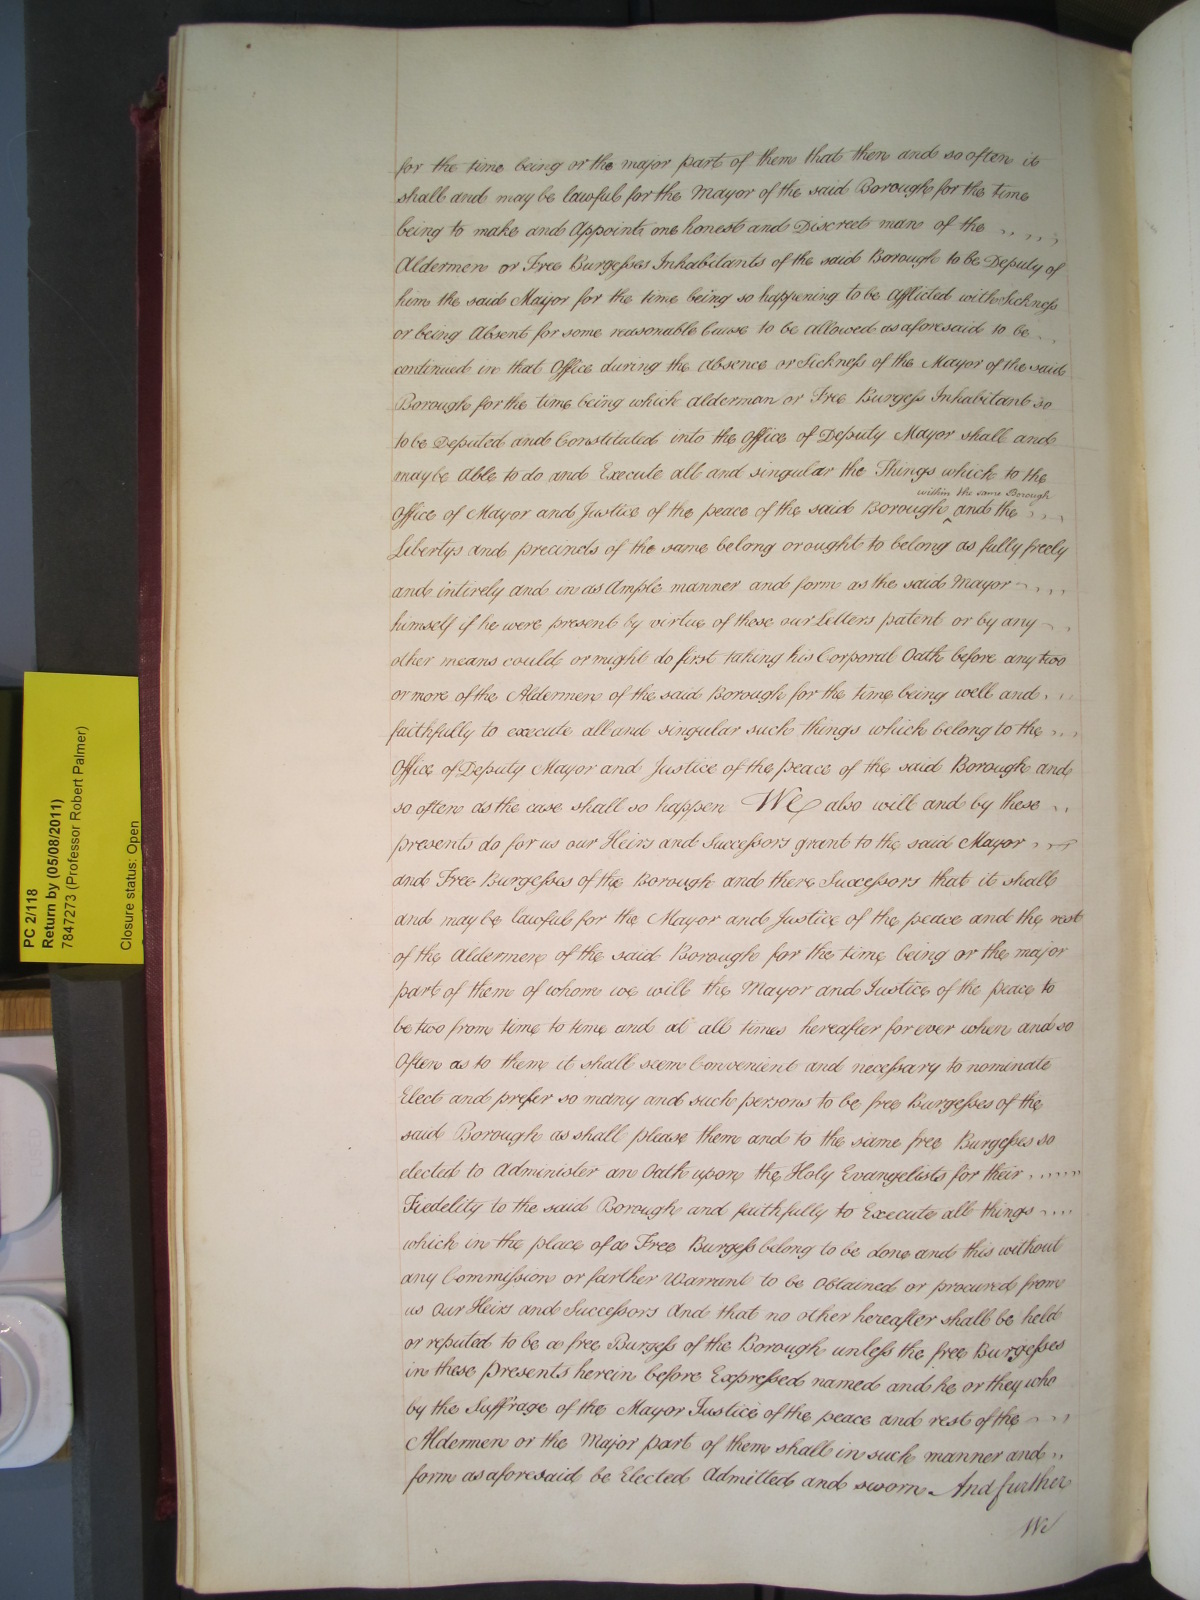 for the time being or the major part of them that then and so often it
shall and may be lawful for the Mayor of the said Borough for the time
being to make and Appoint one honest and Discreet man of the
Aldermen or Free Burgesses Inhabitants of the said Borough to be Deputy of
him the said Mayor for the time being so happening to be Afflicted with Sickness
or being Absent for some reasonable Cause to be allowed as aforesaid to be
continued in that Office during the Absence or Sickness of the Mayor of the said
Borough for the time being which Alderman or Free Burgess Inhabitant so
to be Deputed and Constituted into the Office of Deputy Mayor shall and
may be Able to do and Execute all and singular the Things which to the
within the same Borough
Office of Mayor and Justice of the peace of the said Borough ‸ and the
Libertys and precincts of the same belong or ought to belong as fully freely
and intirely and in as Ample manner and form as the said Mayor
himself if he were present by virtue of these our Letters patent or by any
other means could or might do first taking his Corporal Oath before any two
or more of the Aldermen of the said Borough for the time being well and
faithfully to execute all and singular such things which belong to the
Office of Deputy Mayor and Justice of the peace of the said Borough and
so often as the case shall so happen We also will and by these
presents do for us our Heirs and Successors grant to the said Mayor
and Free Burgesses of the Borough and there Successors that it shall
and may be lawful for the Mayor and Justice of the peace and the rest
of the Aldermen of the said Borough for the time being or the major
part of them of whom we will the Mayor and Justice of the peace to
be two from time to time and at all times hereafter for ever when and so
Often as to them it shall seem Convenient and necessary to nominate
Elect and prefer so many and such persons to be free Burgesses of the
said Borough as shall please them and to the same free Burgesses so
elected to Administer an Oath upon the Holy Evangelists for their
Fiedelity to the said Borough and faithfully to Execute all things
which in the place of a Free Burgess belong to be done and this without
any Commission or farther Warrant to be Obtained or procured from
us Our Heirs and Successors And that no other hereafter shall be held
or reputed to be a free Burgess of the Borough unless the free Burgesses
in these presents herein before Expressed named and he or they who
by the Suffrage of the Mayor Justice of the peace and rest of the
Aldermen or the Major part of them shall in such manner and
form as aforesaid be Elected Admitted and sworn And further
We
PC 2/118
Return by (05/08/2011)
7847273 (Professor Robert Palmer)
Closure status: Open